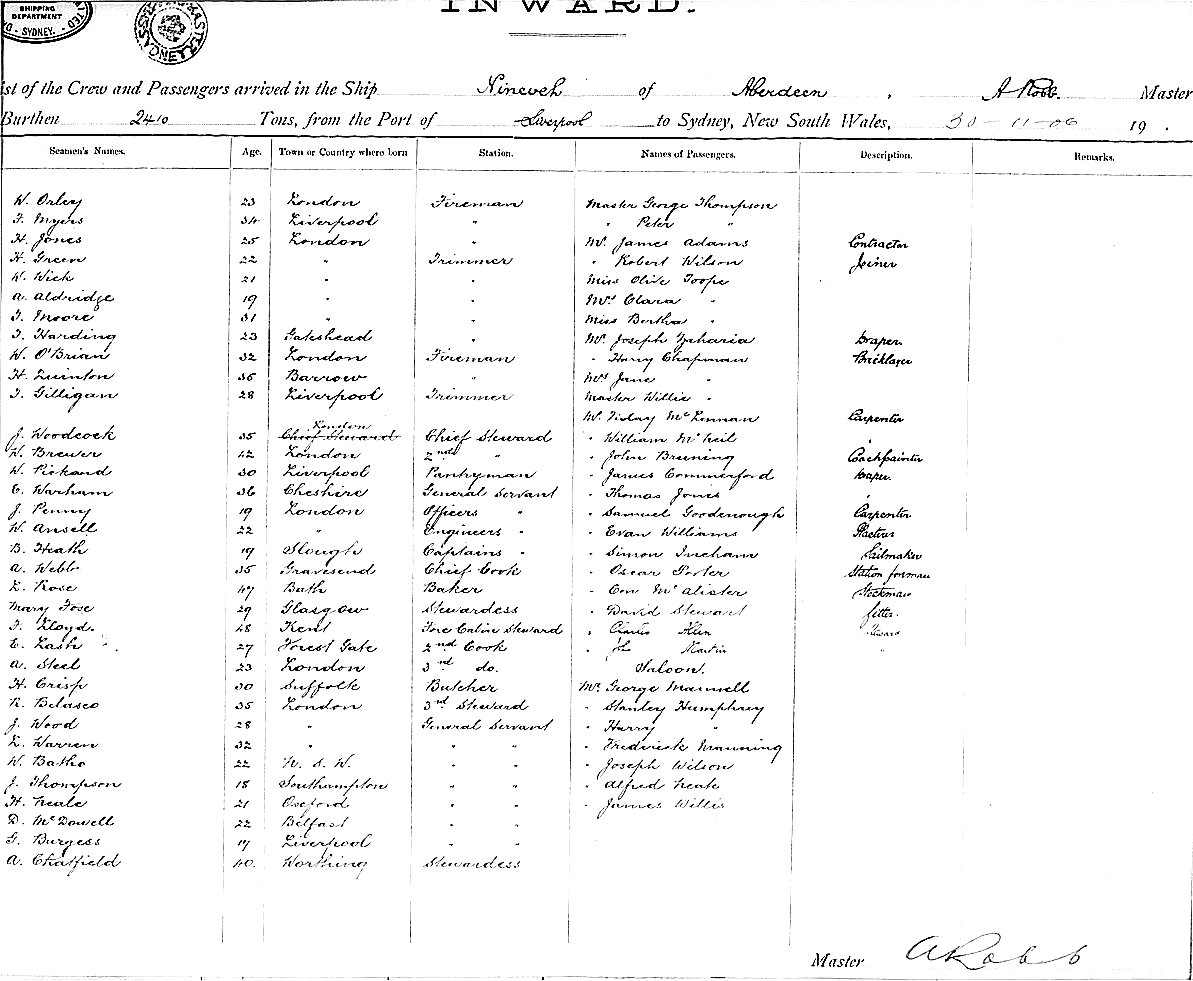 SHIPPING
DEPARTMENT
SYDNEY.
INWARD.
ist of the Crew and Passengers arrived in the Ship Nineveh of Aberdeen , A Robb. Master
Burthen 2410 Tons, from the Port of Liverpool to Sydney, New South Wales, 30-11-06 19 .
Seamen's Names. Age. Town or Country where born Station. Names of Passengers. Description. Remarks.
W. Orley 23 London Fireman Master George Thompson
F. Myers 34 Liverpool " " Peter "
H. Jones 25 London " Mr. James Adams Contractor
H. Green 22 " Trimmer " Robert Wilson Joiner
W. Wick 21 " " Miss Olive Toope
A. Aldridge 19 " " Mrs Clara "
F. Moore 31 " " Miss Bertha "
T. Harding 23 Gateshead " Mr. Joseph Zpharia Draper
W. O'Brian 32 London Fireman " Harry Chapman Bricklayer
H. Quinton 36 Barrow " Mrs Jane "
T. Gilligan 28 Liverpool Trimmer Master Willie "
Mr. Finlay McLennan Carpenter
J. Woodcock 35 London Chief Steward Chief Steward " William McNeil "
W. Brewer 42 London 2nd " " John Bruning Coachpainter
W. Pickand 30 Liverpool Pantryman " James Commerford Draper
E. Warham 36 Cheshire General Servant " Thomas Jones "
J. Penny 19 London Officers " " Samuel Goodenough Carpenter
W. Ansell 22 " Engineers " " Evan Williams
B. Heath 19 Slough Captains " " Simon Incham Sailmaker
A. Webb 35 Gravesend Chief Cook " Oscar Porter Station foreman
L. Rose 47 Bath Baker " Con McAlister Stockman
Mary Fose 29 Glasgow Stewardess " David Stewart fitter.
F. Lloyd. 48 Kent Fore Cabin Steward " Charles Klein Steward
E. Lash 27 Forest Gate 2nd Cook " Martin "
A. Steel 23 London 3rd do. Saloon.
H. Crisp 30 Suffolk Butcher Mr. George Maunsell
R. Belasco 35 London 3rd Steward " Stanley Humphrey
J. Wood 28 " General Servant " Harry "
L. Warren 32 " " " " Frederick Manning
W. Batho 22 N. S. W. " " " Joseph Wilson
J. Thompson 18 Southampton " " " Alfred Neale
H. Neale 21 Oxford " " " James Willis
D. McDowell 22 Belfast " "
G. Burgess 19 Liverpool " "
A. Chatfield 40. Worthing Stewardess
Master A Robb